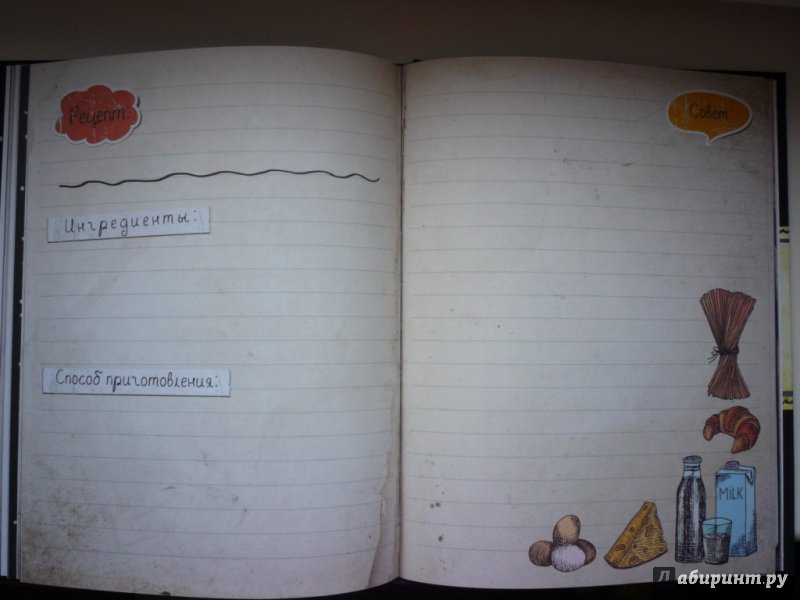 Рецепт:
Ингредиенты:
Способ приготовления:
Совет:
MILK
Лабиринт.ру